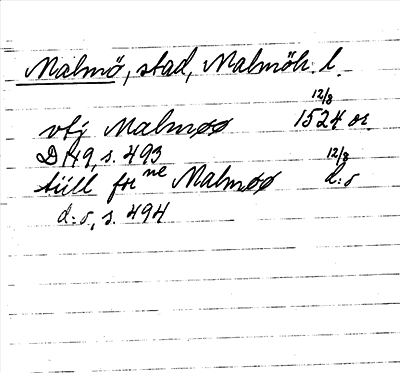 Malmö, stad, Malmöh. l.
12/8
vtj Malmøø 1524 or.
D 149, s. 493
12/8
tiill for ne Malmøø d:o
d:o, s. 494